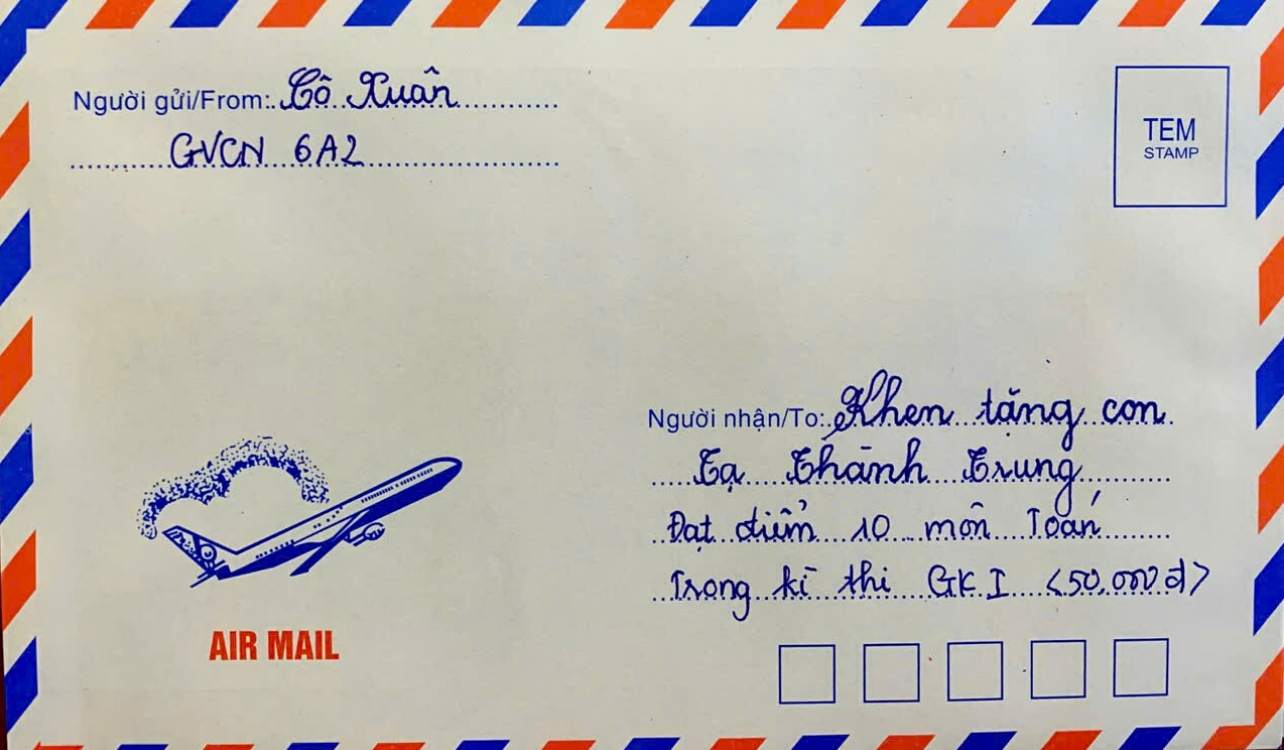 Người gửi/From: Cô Xuân
GVCN 6A2
TEM
STAMP
Người nhận/To: Khen tặng con
Tạ Thành Trung
Đạt điểm 10 môn Toán
Trong kì thi GKI <50.000đ>
AIR MAIL